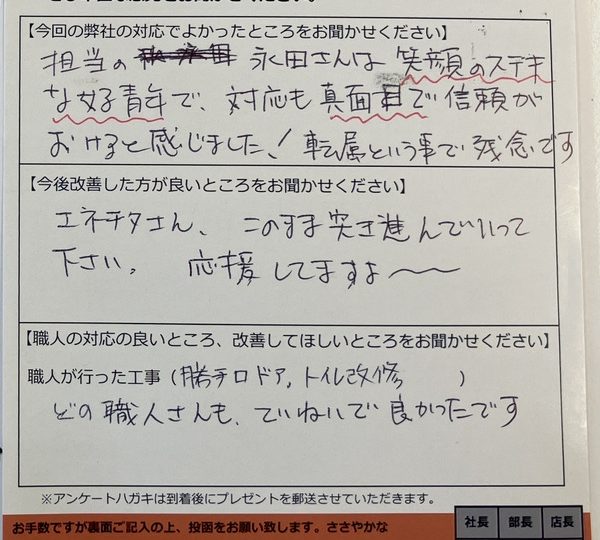 【今回の弊社の対応でよかったところをお聞かせください】
担当の 永田さんは 笑顔のステキ
な好青年で、対応も真面目で信頼が
おけると感じました！転属という事で残念です
【今後改善した方が良いところをお聞かせください】
エネチタさん、このまま突き進んでいって
下さい。 応援してますよ〜〜
【職人の対応の良いところ、改善してほしいところをお聞かせください】
職人が行った工事（勝手口ドア，トイレ改修 ）
どの職人さんも、ていねいで良かったです
※アンケートハガキは到着後にプレゼントを郵送させていただきます。
お手数ですが裏面ご記入の上、投函をお願い致します。ささやかな
社長 部長 店長